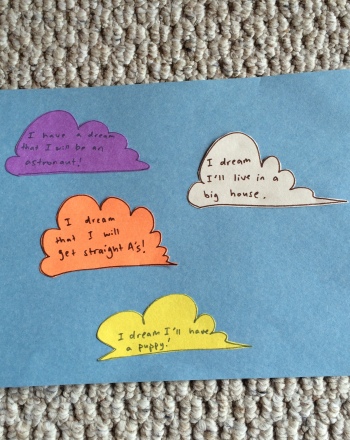 I have a dream
that I will be an
astronaut!
I dream
I'll live in a
big house.
I dream
that I will
get straight A's!
I dream I'll have
a puppy!